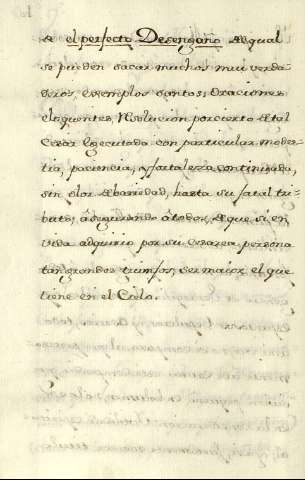 de el perfecto Desengaño del qual
se pueden sacar muchos mui verda
deros, exemplos santos, oraciones
eloquentes, Resolucion por cierto de tal
Cesar executada con particular modes
tia, paciencia, y fortaleza continuada,
sin olor de bariedad, hasta su fatal tri
buto, asegurando à todos, de que si en
vida adquirio por su cesarea persona
tan grandes triunfos, es maior el que
tiene en el Cielo.